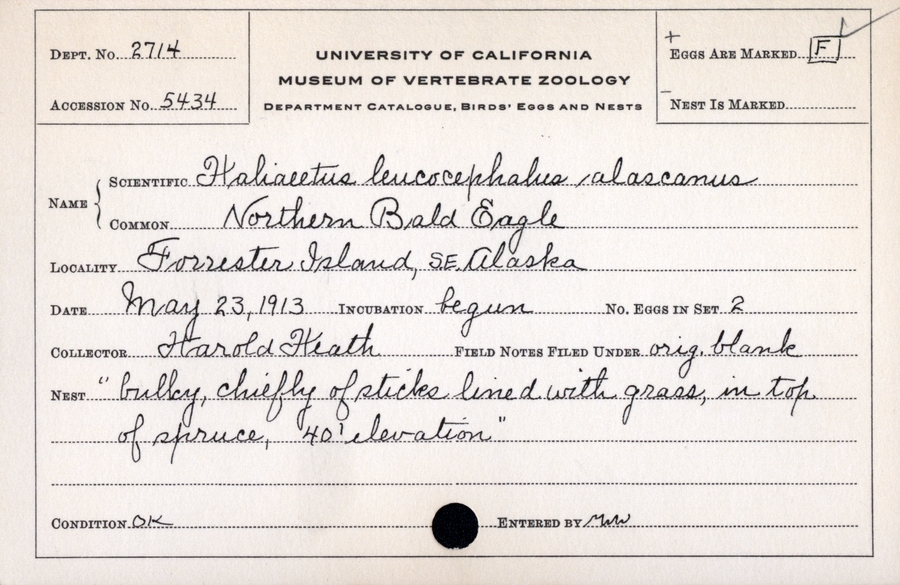 Dept. No. 2714
Accession No. 5434
UNIVERSITY OF CALIFORNIA
MUSEUM OF VERTEBRATE ZOOLOGY
Department Catalogue, Birds' Eggs and Nests
+
Eggs Are Marked F
-
Nest Is Marked
Name { Scientific Haliaeetus leucocephalus alascanus
Common Northern Bald Eagle
Locality Forrester Island, SE. Alaska
Date May 23, 1913 Incubation begun No. Eggs in Set 2
Collector Harold Heath Field Notes Filed Under orig. blank
Nest "bulky, chiefly of sticks lined with grass, in top
of spruce, 40' elevation"
Condition OK Entered by